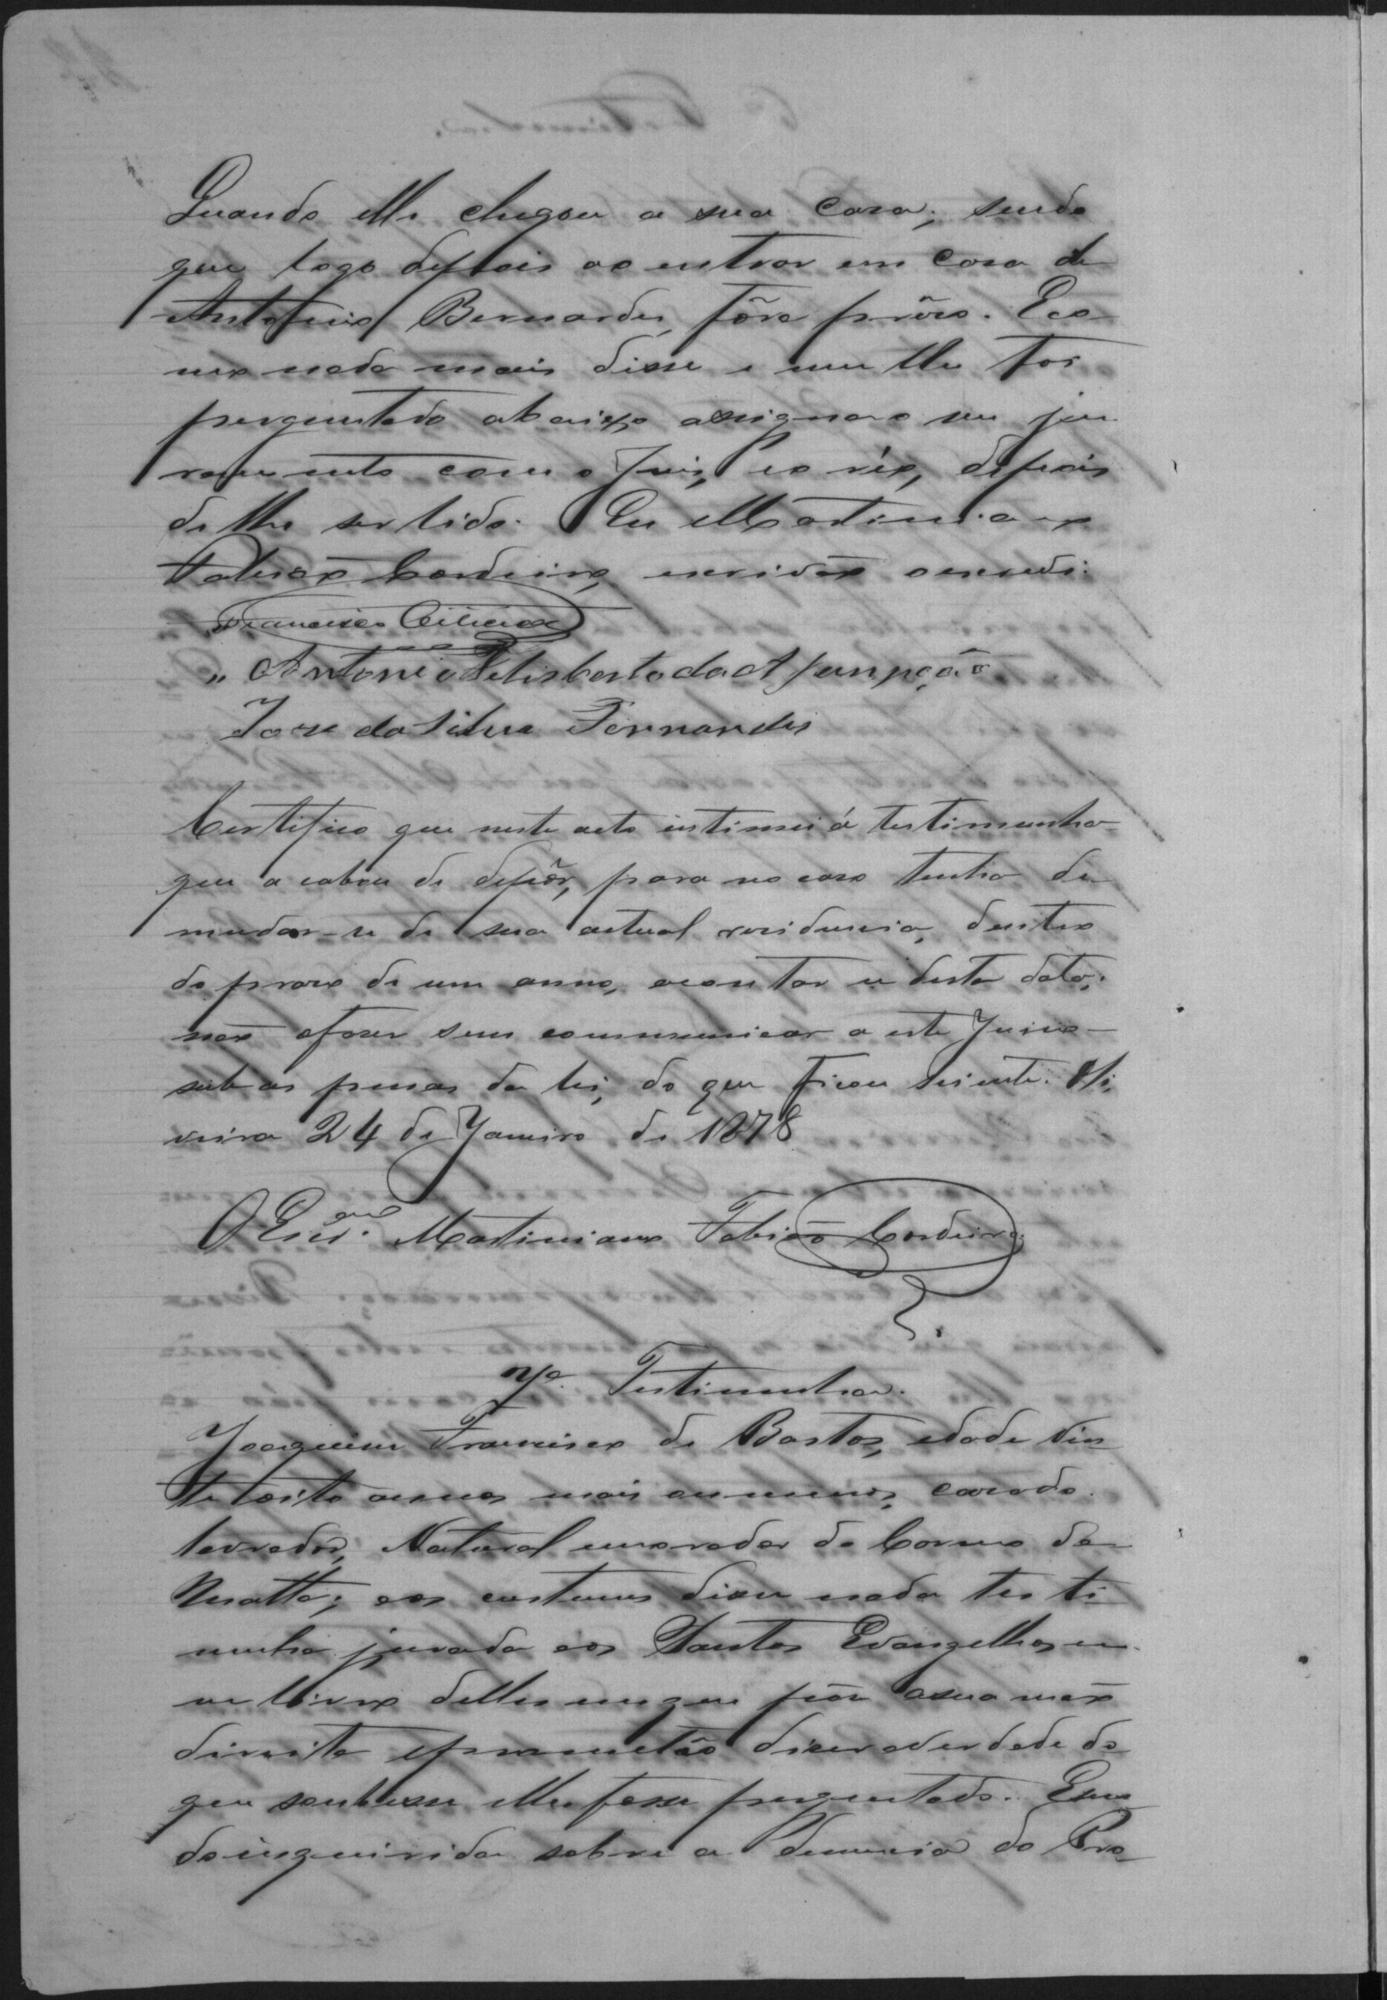 Quando elle chegou a sua casa; sendo
que logo depois ao entrar em casa de
Antonio Bernardes, fôra prêzo. E co
mo nada mais disse e nem lhe foi
perguntado abaixo assigna o seu ju
ramento com o Juis, e o réo, depois
de lhe ser lido. Eu Martiniano
Fabião Cordeiro, escrivão o escrevi.
Francisco
Antonio Felisberto da Assumpção
Joze da Silva Fernandes
Certifico que neste acto intimei á testimunha
que acabou de depôr, para no caso tenha de
mudar-se de sua actual residencia, dentro
do praso de um anno, a contar-se desta data,
não o faser sem communicar a este Juiso
sub as penas da lei, do que ficou sciente. Oli
veira 24 de Janeiro de 1878
O Escr.am Martiniano Fabião Cordeiro.
7a. Testimunha.
Joaquim Francisco de Bastos, edade vin
te oito annos mais ou menos, casado.
lavrador, Natural e morador do Carmo da
Matta; aos costumes disse nada testi
munha jurada aos Santos Evangelhos em
um livro delles em que pôs a sua mão
direita e prometêo diser a verdade do
que soubesse e lhe fosse perguntado. E sen
do inquirida sobre a denuncia do Pro